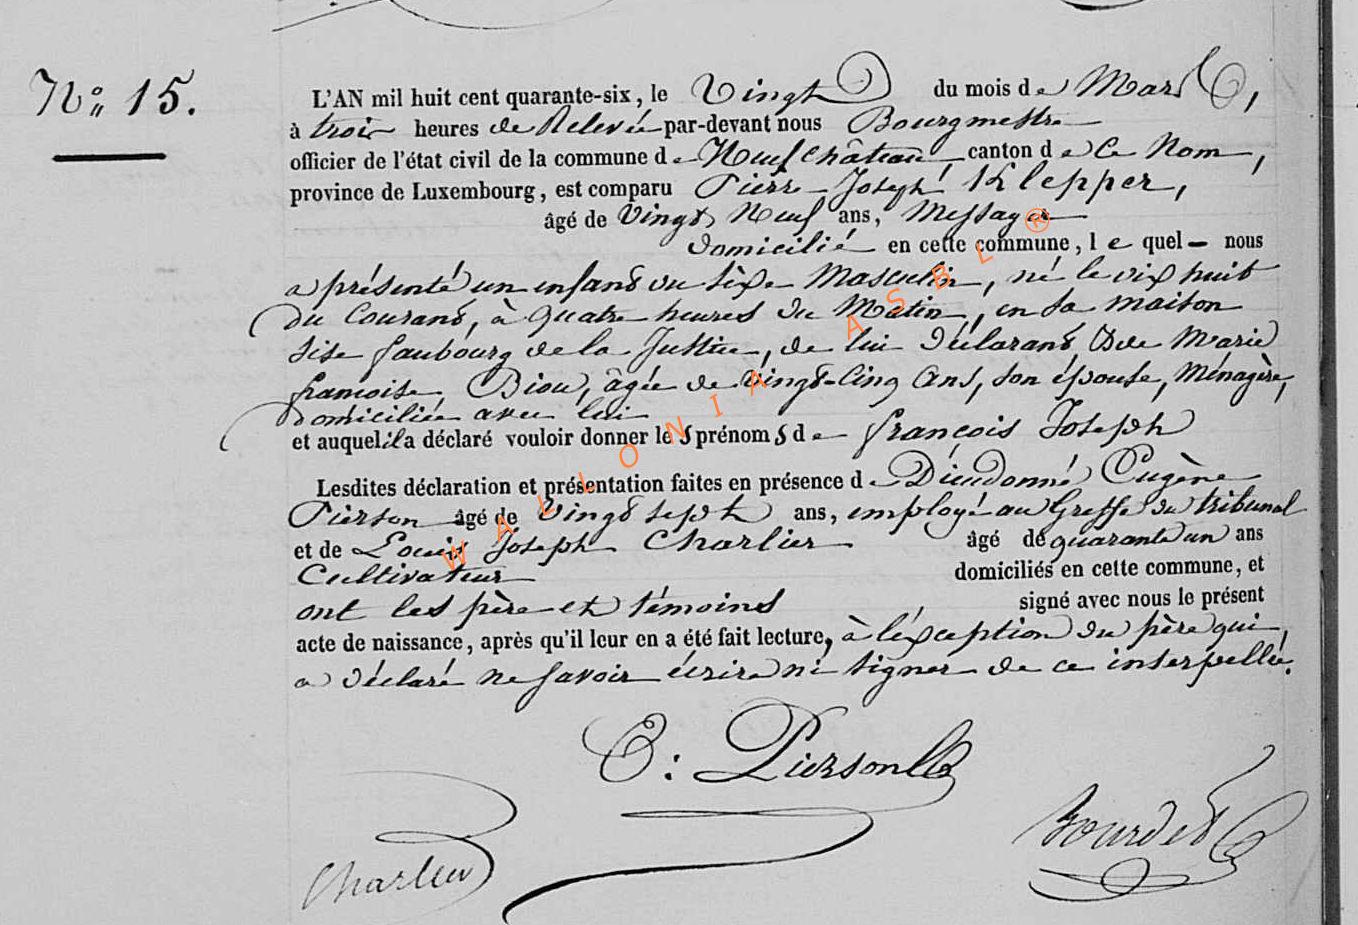 N° 15.
L'AN mil huit cent quarante-six, le Vingt du mois de Mars,
à trois heures de Relevée par-devant nous Bourgmestre
officier de l'état civil de la commune de Neufchâteau, canton de ce Nom,
province de Luxembourg, est comparu Pierre Joseph Klepper,
âgé de Vingt Neuf ans, Messager
domicilié en cette commune, lequel nous
a présenté un enfant du sèxe Masculin, né le dix huit
du Courant, à quatre heures du Matin, en sa maison
sise faubourg de la Justice, de lui déclarant & de Marie
françoise, Diou, âgée de vingt-Cinq Ans, son épouse, Ménagère,
domiciliée avec lui
et auquel il a déclaré vouloir donner les prénoms de françois Joseph
Lesdites déclaration et présentation faites en présence de Dieudonné Eugène
Pierson âgé de vingt sept ans, employé au Greffe du tribunal
et de Louis Joseph Charlier âgé de quarante un ans
Cultivateur domiciliés en cette commune, et
ont les père et témoins signé avec nous le présent
acte de naissance, après qu'il leur en a été fait lecture, à l'éxception du père qui,
a déclaré ne savoir écrire ni signer de ce interpellé.
E: Pierson
Charlier
Bourdet
WALLONIA ASBL ®